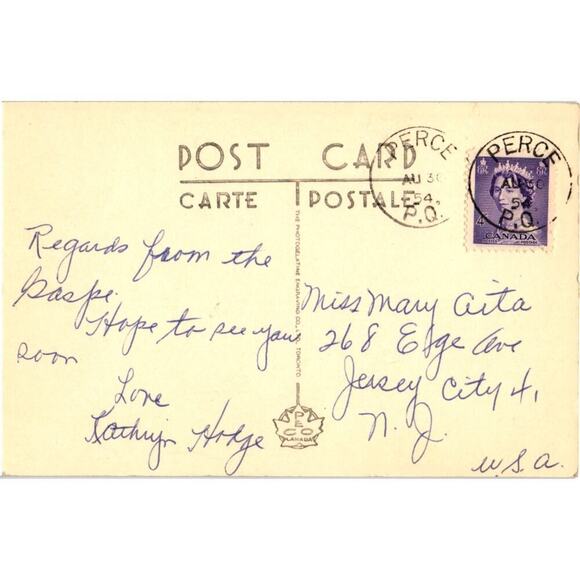 POST CARD
CARTE POSTALE
PERCE
AU 30
54
P.Q.
PERCE
AU 30
54
P.Q.
4
CANADA
Regards from the
Gaspe.
Hope to see you
soon
Love
Kathryn Hodge
THE PHOTOGELATINE ENGRAVING CO., LTD. TORONTO
PECO
CANADA
Miss Mary Aita
268 Ege Ave
Jersey City 4,
N. J.
U.S.A.